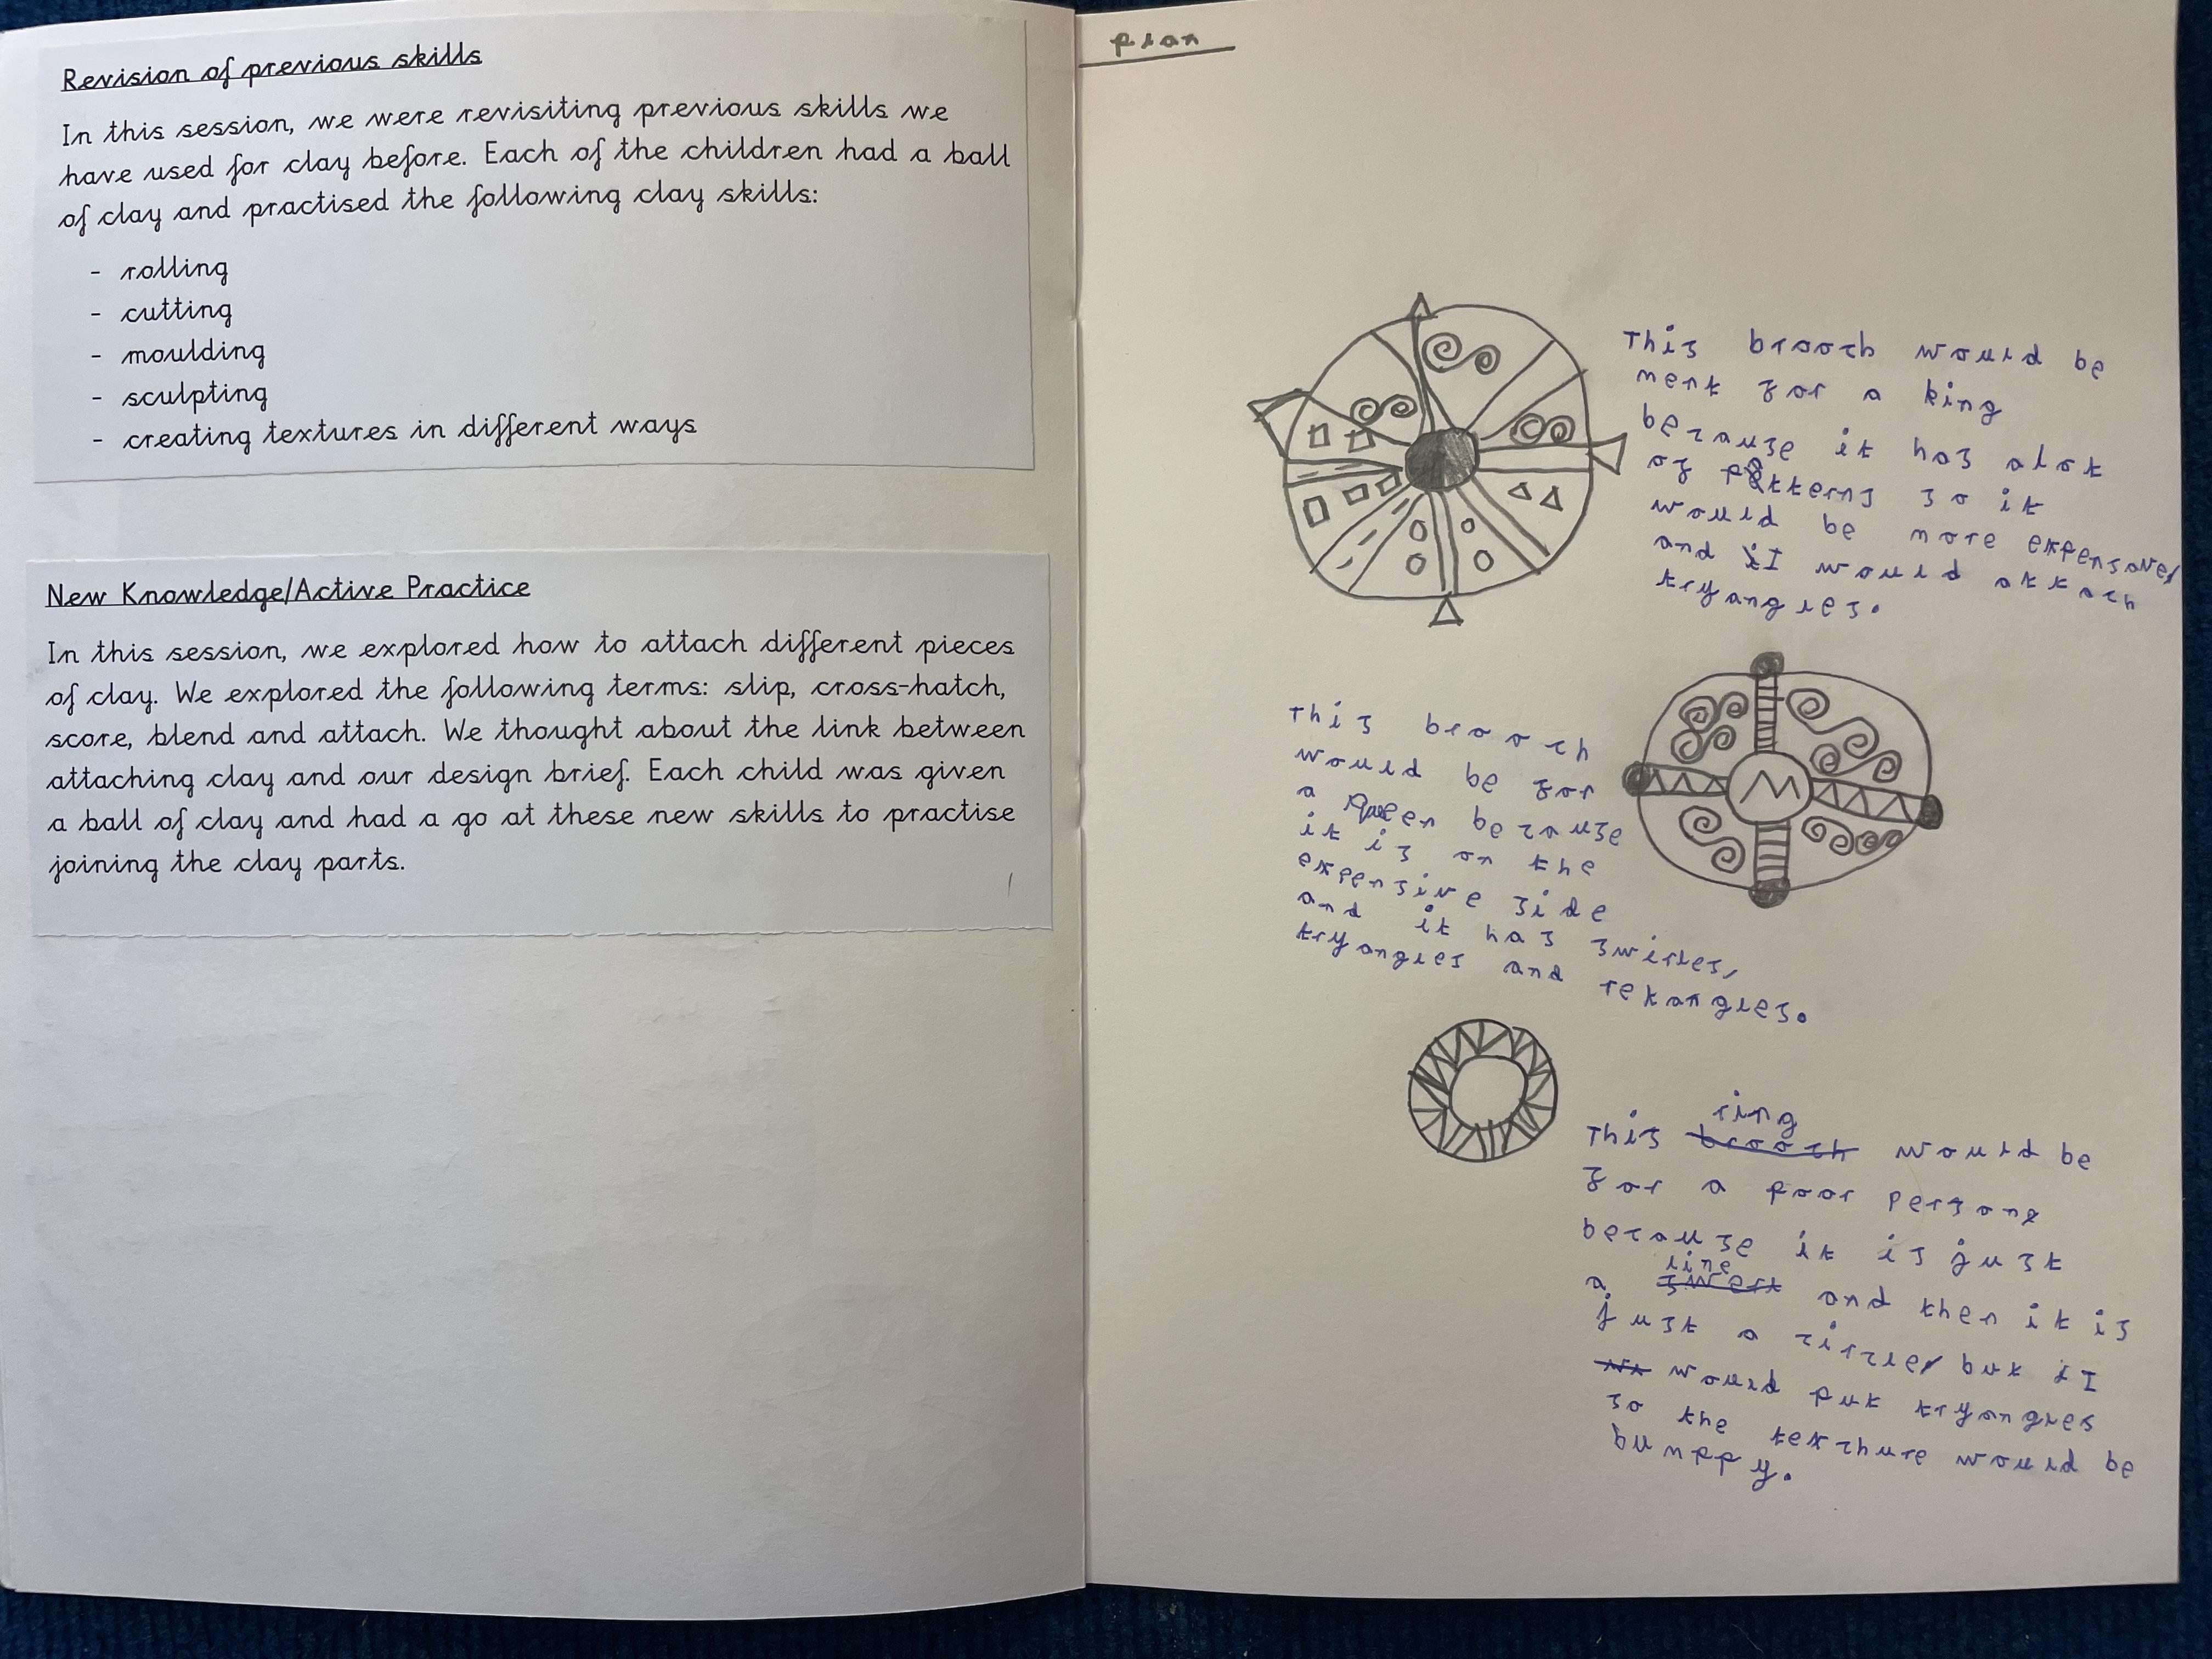 Revision of previous skills
In this session, we were revisiting previous skills we
have used for clay before. Each of the children had a ball
of clay and practised the following clay skills:
- rolling
- cutting
- moulding
- sculpting
- creating textures in different ways
New Knowledge/Active Practice
In this session, we explored how to attach different pieces
of clay. We explored the following terms: slip, cross-hatch,
score, blend and attach. We thought about the link between
attaching clay and our design brief. Each child was given
a ball of clay and had a go at these new skills to practise
joining the clay parts.
plan
This brooch would be
ment for a king
because it has alot
of patterns so it
would be more expensave,
and I would attach
tryangles.
This brooch
would be for
a Queen because
it is on the
expensive side
and it has swirles,
tryangles and rekangles.
ring
This brooch would be
for a poor person
because it is just
line
a swert and then it is
just a circle, but I
would put tryangles
so the texchure would be
bumppy.